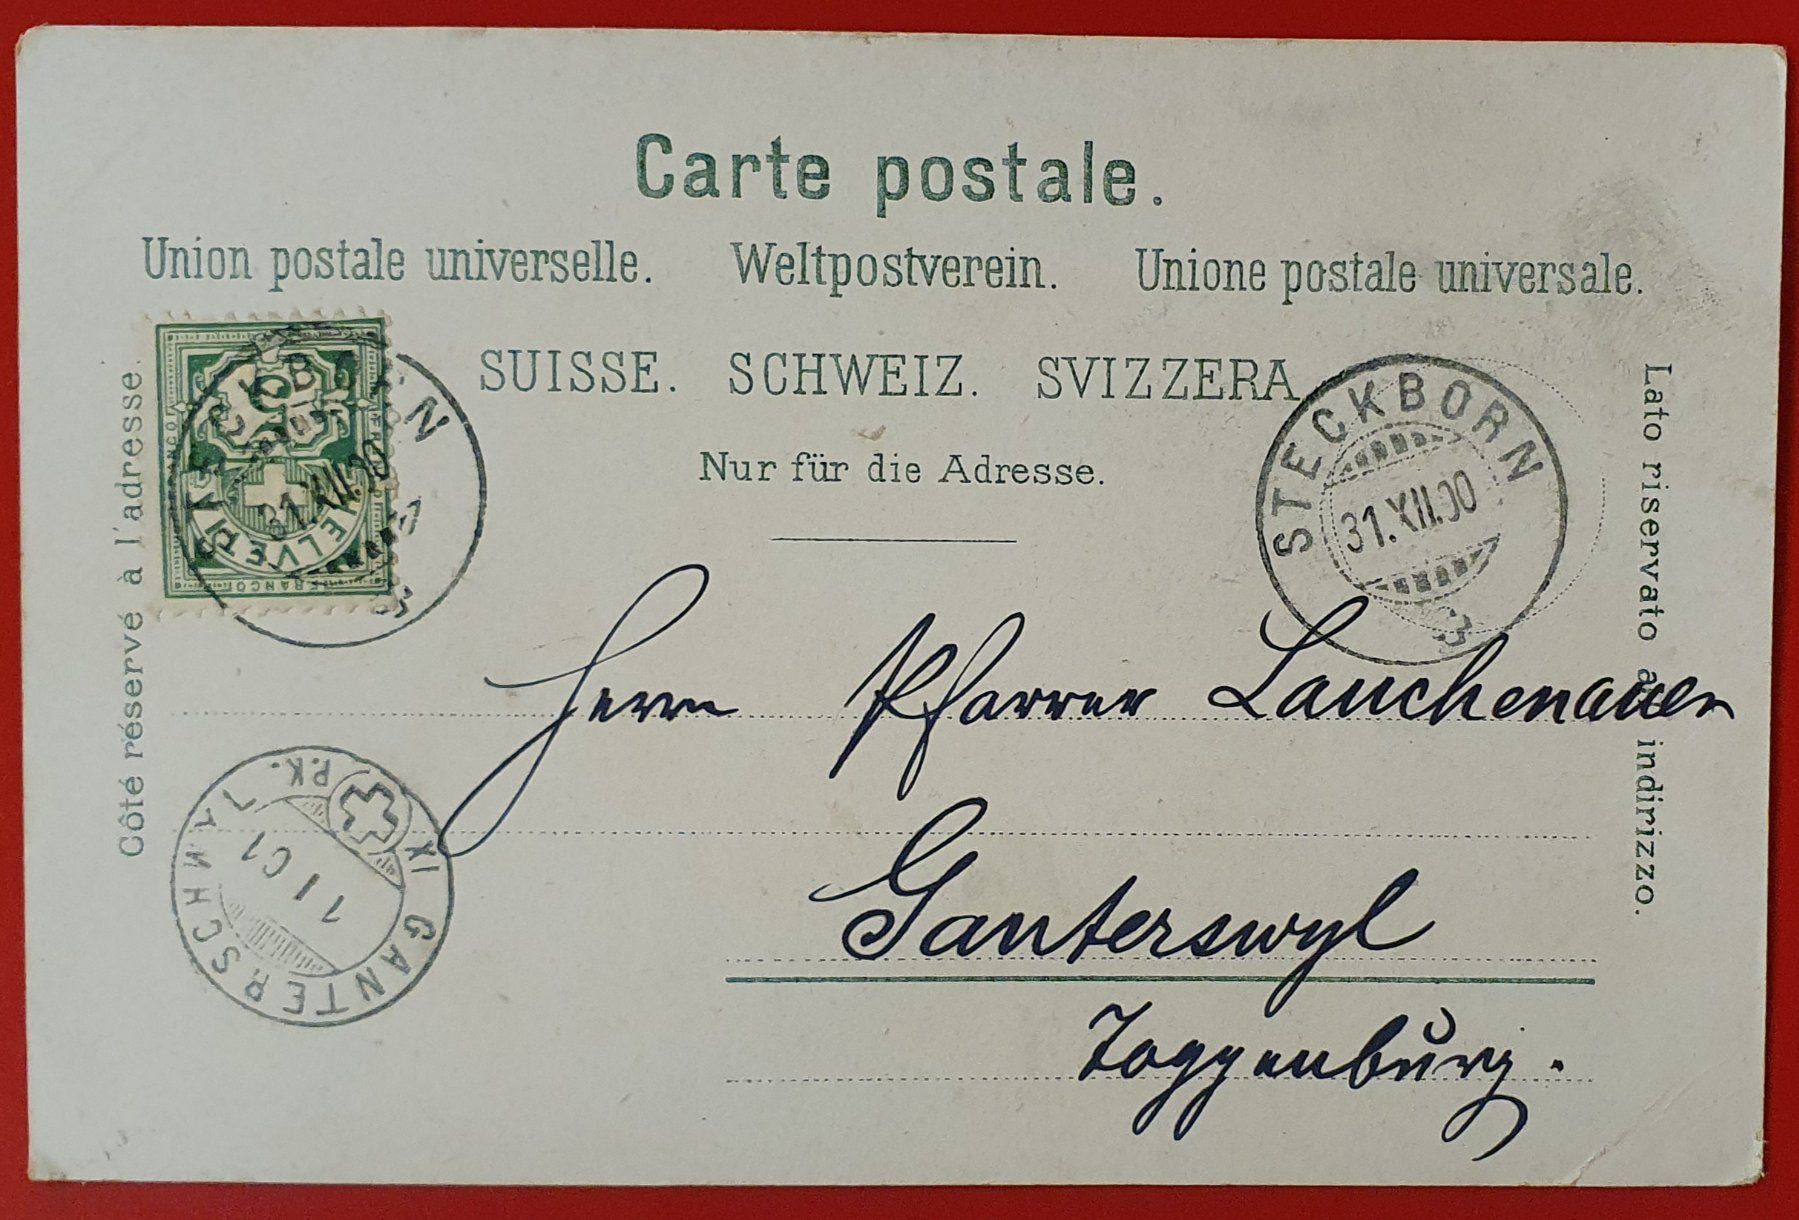 Carte postale.
Union postale universelle. Weltpostverein. Unione postale universale.
SUISSE. SCHWEIZ. SVIZZERA
Nur für die Adresse.
Côté réservé à l'adresse.
Lato riservato all' indirizzo.
5
HELVETIA
FRANCO
STECKBORN
31.XII.00
STECKBORN
31.XII.00
Herrn Pfarrer Lauchenauer
Ganterswyl
Toggenburg.
GANTERSCHWYL P.K.
1 I 01
XI